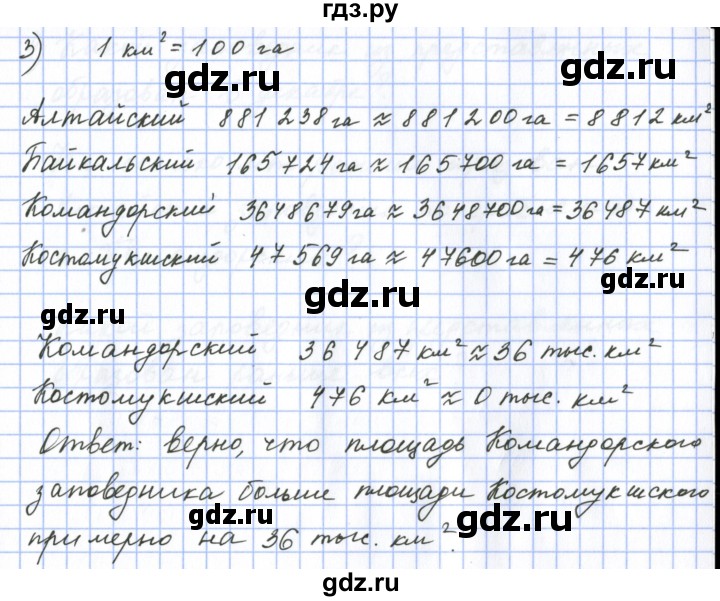 гдз.ру
3) 1 км² = 100 га
gdz.ru gdz.ru
Алтайский 881 238 га ≈ 881 200 га = 8812 км²
Байкальский 165 724 га ≈ 165700 га = 1657 км²
Командорский 3648679 га ≈ 3648700 га = 36487 км²
Костомукшский 47 569 га ≈ 47600 га = 476 км²
gdz.ru gdz.ru
Командорский 36 487 км² ≈ 36 тыс. км²
Костомукшский 476 км² ≈ 0 тыс. км²
Ответ: верно, что площадь Командорского
заповедника больше площади Костомукшского
gdz.ru gdz.ru
примерно на 36 тыс. км².
gdz.ru